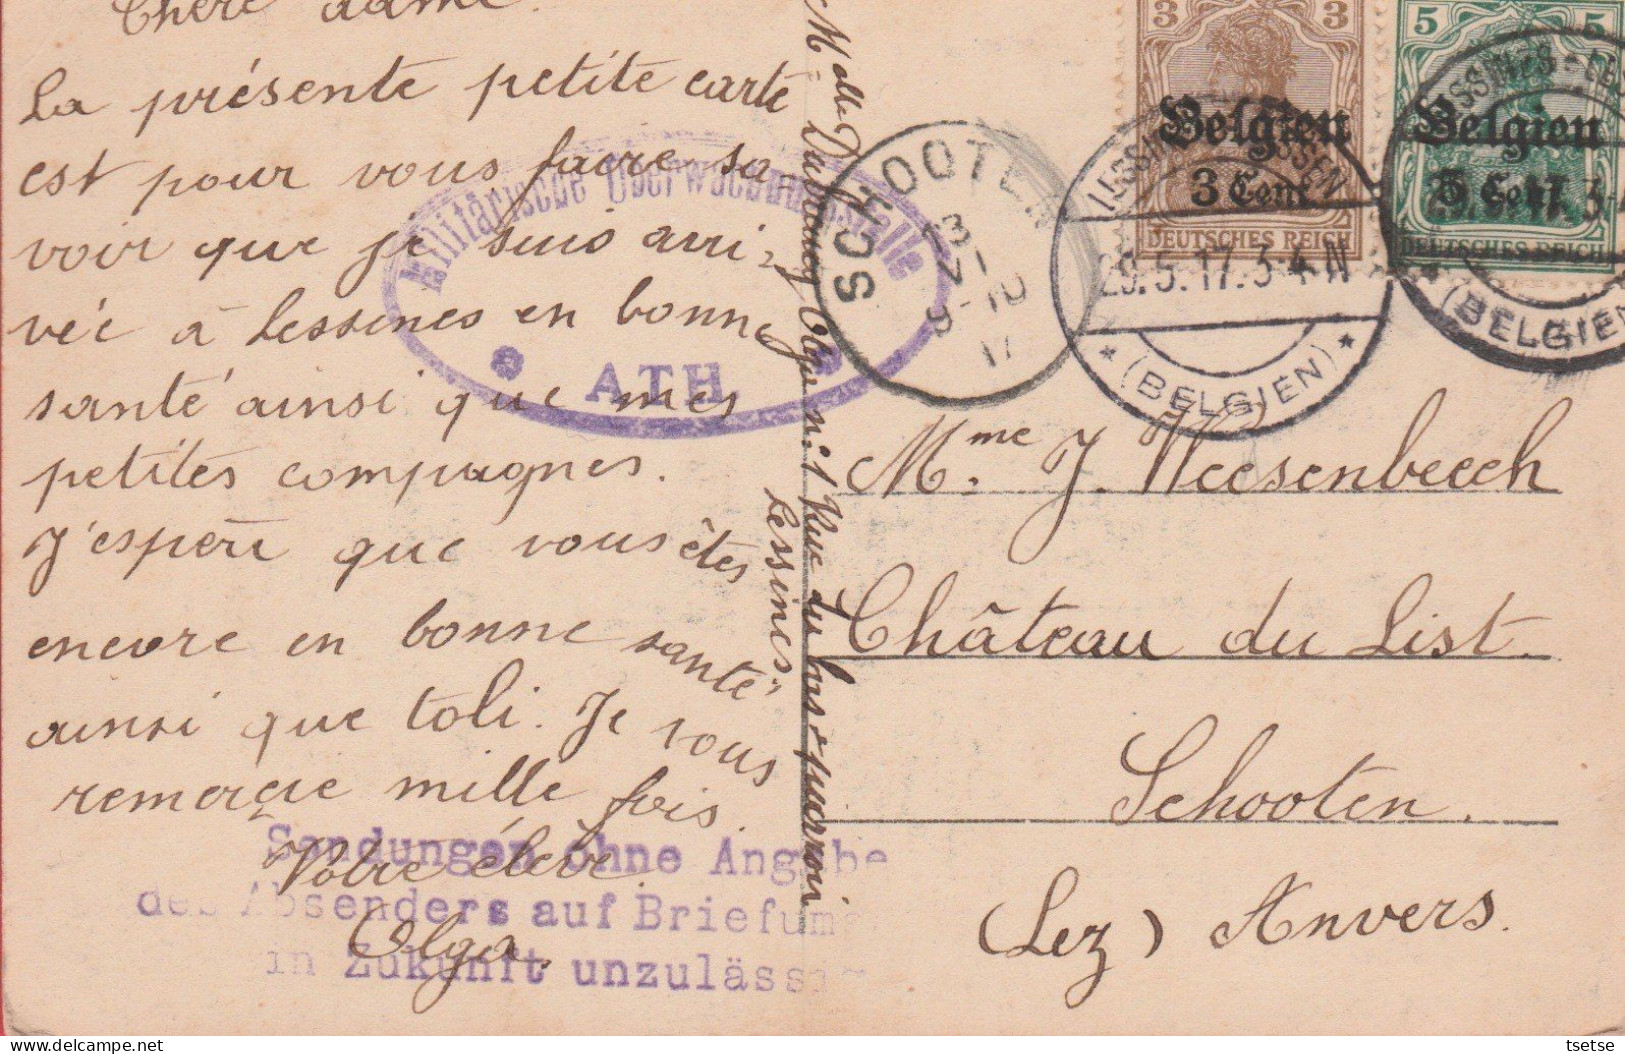 Chère dame.
La présente petite carte
est pour vous faire sa-
voir que je suis arri-
vée à Lessines en bonne
santé ainsi que mes
petites compagnes.
J'espère que vous êtes
encore en bonne santé
ainsi que toli. Je vous
remercie mille fois.
Votre élève
Olga.
Militärische Überwachungsstelle
ATH
Sendungen ohne Angabe
des Absenders auf Briefum
in Zukunft unzuläss
Melle Olga n:1 Rue du
Lessines.
SCHOOTEN
3 3
Belgien
3 Cent
DEUTSCHES REICH
5 5
Belgien
5 Cent
DEUTSCHES REICH
LESSINES
29.5.17.3-4 N
(BELGIEN)
(BELGIEN
Mme J. Weesenbeech
Château du List.
Schooten.
(Lez) Anvers.
tsetse delcampe.net